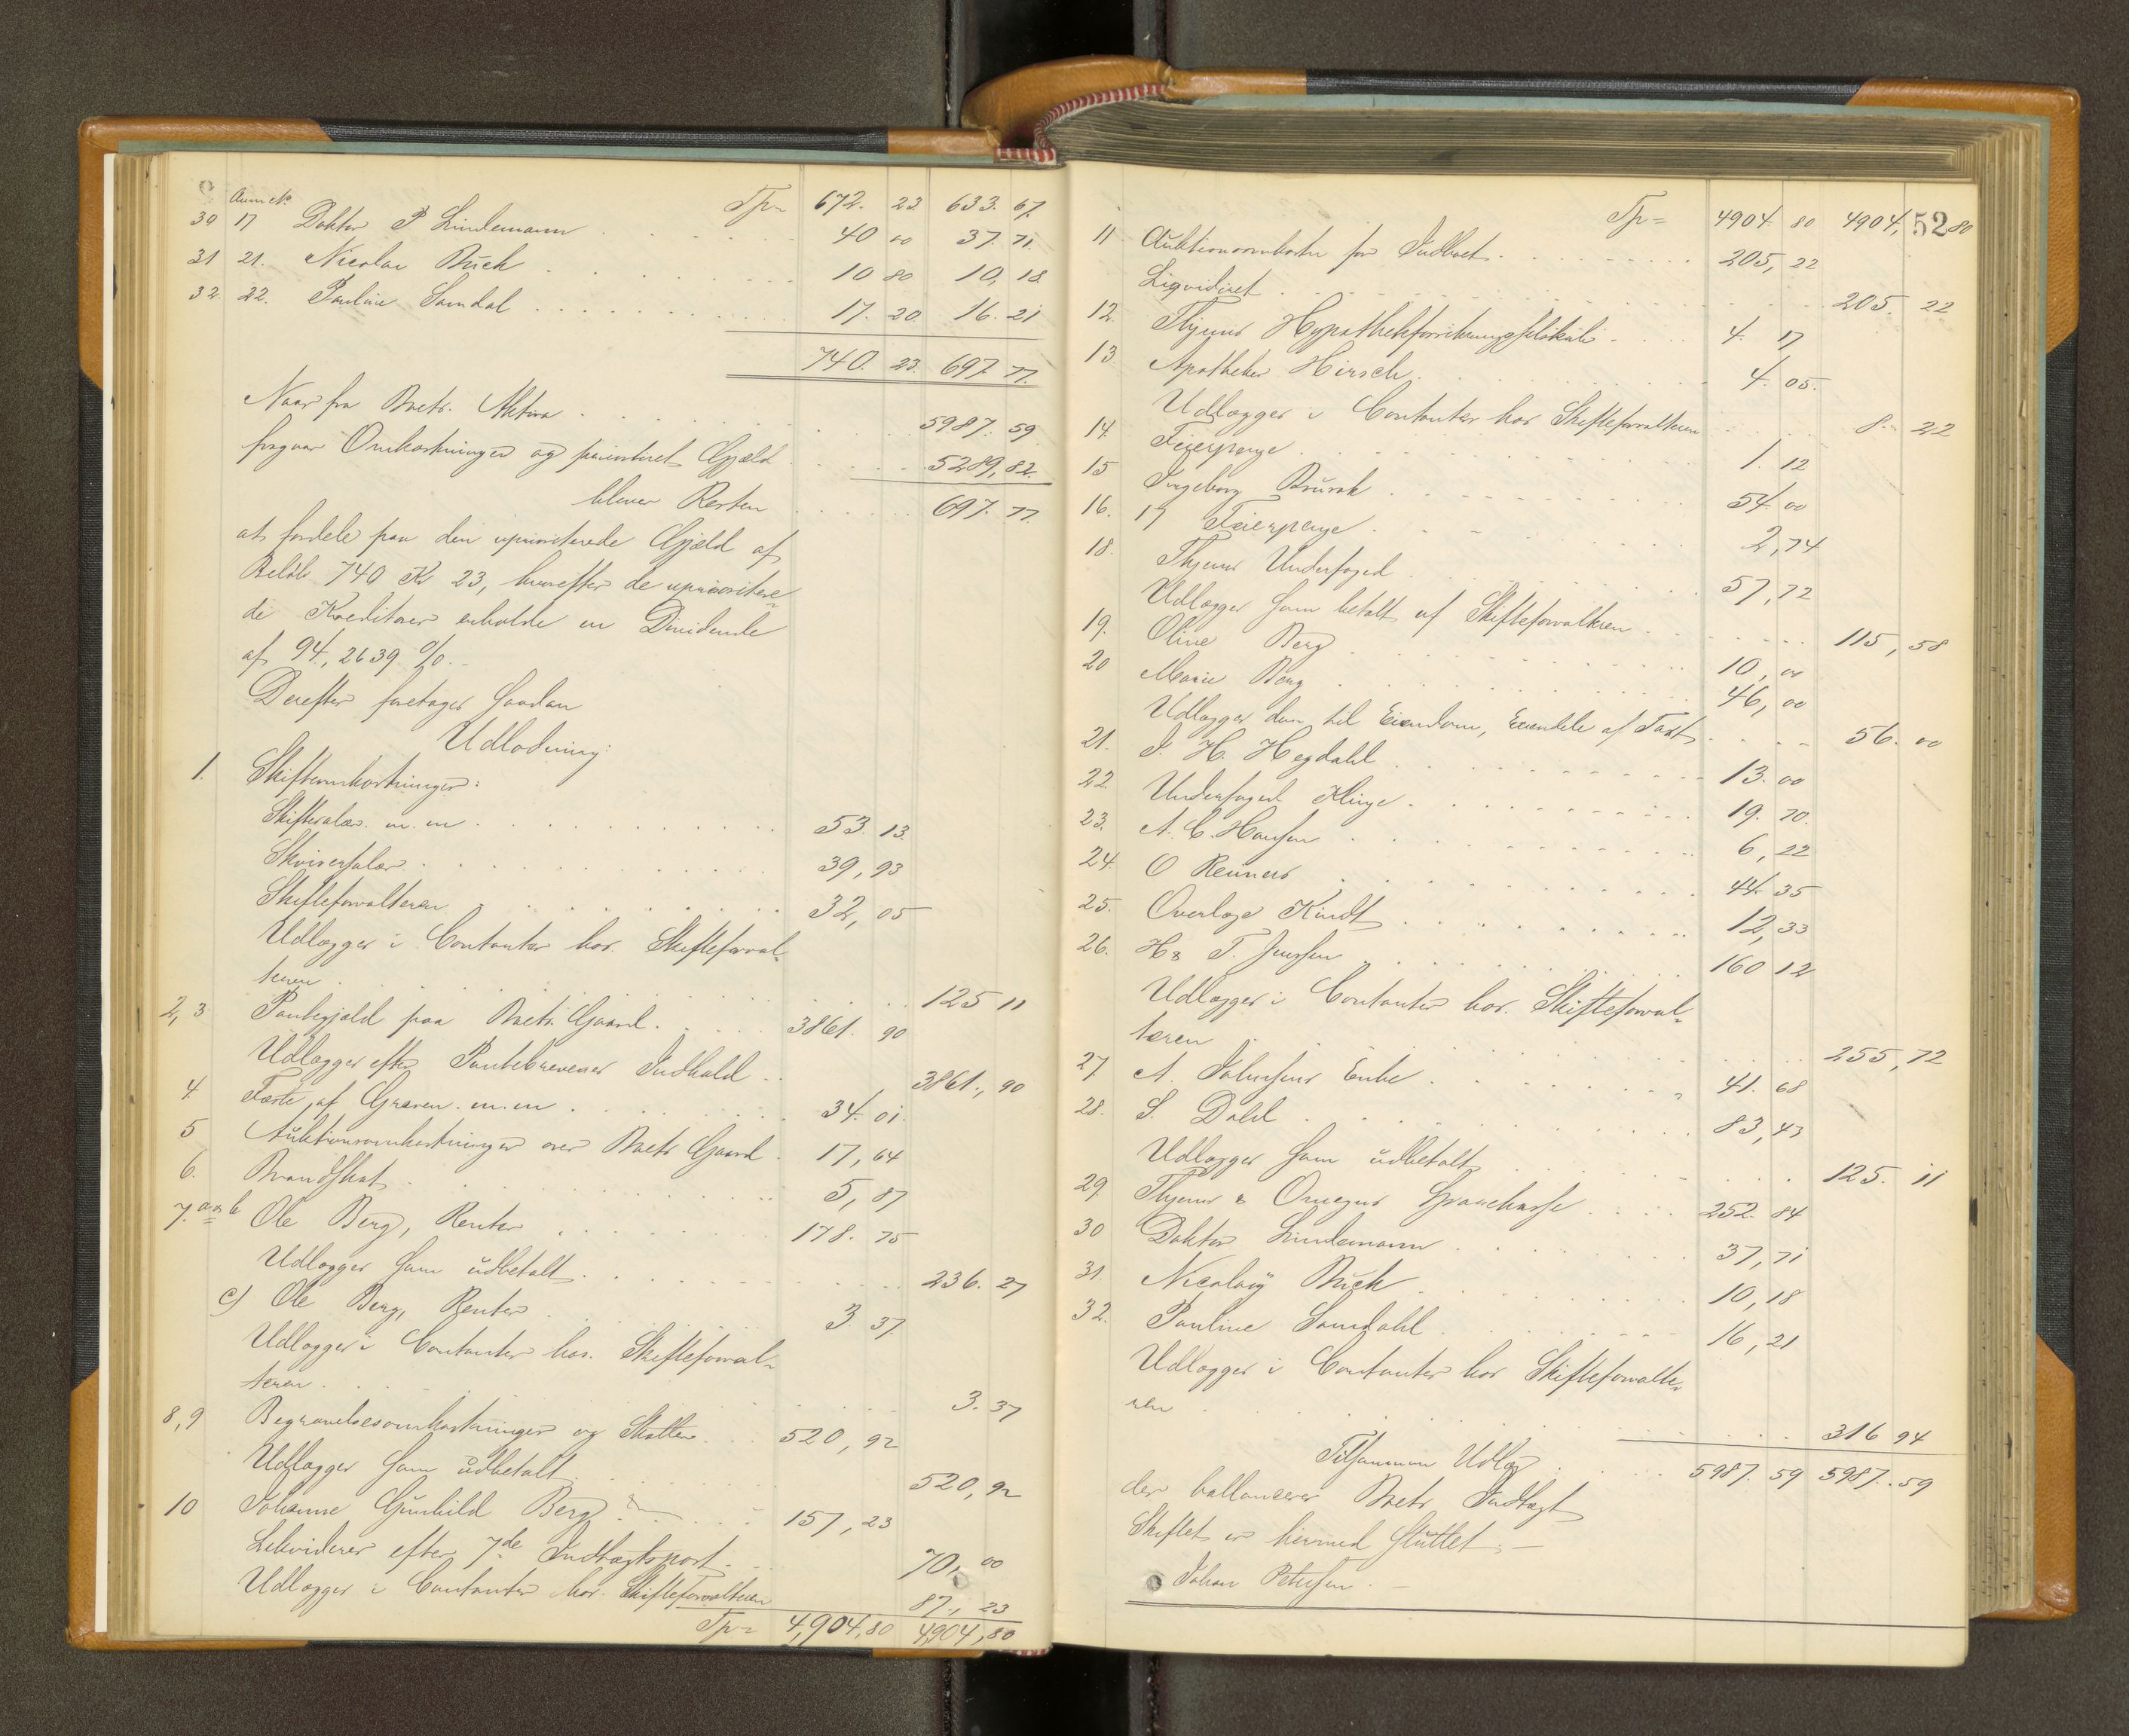 Anm. No
Tp= 672. 23. 633. 67.
30 17 Doktor P Lindemann 40 00 37. 71.
31 21. Nicolai Buch 10 80 10, 18.
32. 22. Pauline Samdal 17. 20. 16. 21
740. 23. 697. 77.
Naar fra Boets Aktiva 5987. 59.
fragaar Omkostninger og prioriteret Gjæld 5289, 82.
bliver Resten 697. 77.
at fordele paa den uprioriterede Gjæld af
Beløb 740 Kr 23, hvorefter de uprioritere-
de Kreditorer erholde en Dividende
af 94, 2639 %.-
Derefter foretages saadan
Udlodning:
1. Skifteomkostninger:
Skiftesalær m. m 53. 13.
Skriversalær 39, 93
Skifteforvalteren 32, 05
Udlægges i Contanter hos Skifteforval-
teren 125 11
2, 3 Pantegjæld paa Boets Gaard 3861. 90
Udlægges efter Pantebrevenes Indhold 3861., 90
4. Fæste af Graven m. m 34. 01.
5 Auktionsomkostninger over Boets Gaard 17, 64
6. Brandskat 5, 87
7. a og b Ole Berg, Renter 178. 75
Udlægges som udbetalt 236. 27
c) Ole Berg, Renter 3. 37.
Udlægges i Contanter hos Skifteforval-
teren 3. 37
8, 9 Begravelsesomkostninger og Skatter 520, 92
Udlægges som udbetalt 520, 92
10 Johanne Gunhild Berg 157, 23
Likviderer efter 7de Indtægtspost 70, 00
Udlægges i Contanter hos Skifteforvalteren 87., 23
Tp= 4,904, 80 4,904, 80
52
Tp= 4904. 80 4904, 80
11 Auktionsomkoster for Indboet 205, 22
Liqvideret 205. 22
12. Thjems Hypothekforsikringsselskab 4. 17
13. Apotheker Hirsch 4. 05.
Udlægges i Contanter hos Skifteforvalteren 8. 22
14. Feierpenge 1. 12
15 Ingeborg 54. 00
16. 17 Feierpenge 2, 74
18. Thjems Underfoged 57, 72
Udlægges som betalt af Skifteforvalteren 115, 58
19. Oline Berg 10, 00
20 Marie Berg 46, 00
Udlægges dem til Eiendom, Eiendele af Taxt 56. 00
21. J. H. Hegdahl 13. 00
22. Underfoged Klinge 19. 70.
23. A. C. Hansen 6, 22
24. O Renners 44. 35
25. Overlæge Kindt 12, 33
26. H. & T. Jenssen 160 12
Udlægges i Contanter hos Skifteforval-
teren 255, 72
27 A. Johnsens Enke 41. 68
28. S. Dahl 83, 43
Udlægges som udbetalt 125. 11
29 Thjems & Omegns Sparekasse 252. 84
30 Doktor Lindemann 37, 71
31. Nicolaij Buch 10, 18
32. Pauline Samdahl 16, 21
Udlægges i Contanter hos Skifteforvalte-
ren 316 94
Tilsammen Udlæg 5987. 59 5987. 59
der ballancerer Boets Indtægt
Skiftet er hermed sluttet.-
Johan Petersen.-